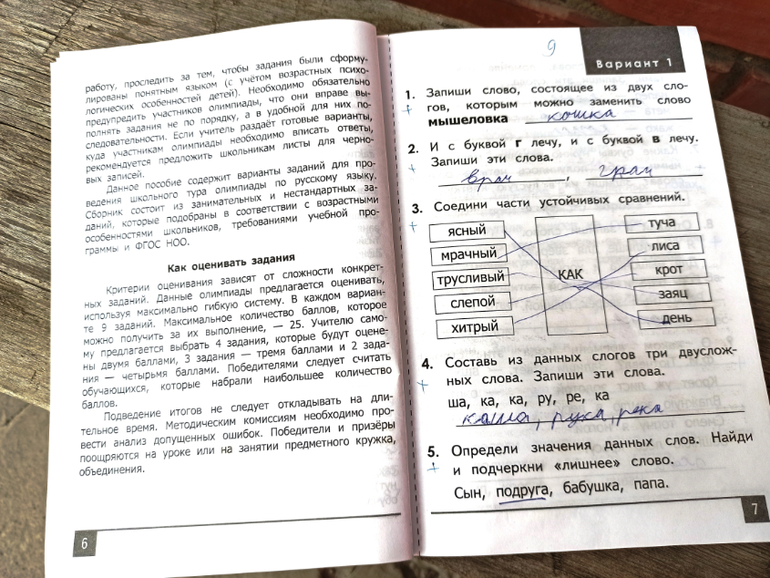 работу, проследить за тем, чтобы задания были сформу-
лированы понятным языком (с учётом возрастных психо-
логических особенностей детей). Необходимо обязательно
предупредить участников олимпиады, что они вправе вы-
полнять задания не по порядку, а в удобной для них по-
следовательности. Если учитель раздаёт готовые варианты,
куда участникам олимпиады необходимо вписать ответы,
рекомендуется предложить школьникам листы для черно-
вых записей.
Данное пособие содержит варианты заданий для про-
ведения школьного тура олимпиады по русскому языку.
Сборник состоит из занимательных и нестандартных за-
даний, которые подобраны в соответствии с возрастными
особенностями школьников, требованиями учебной про-
граммы и ФГОС НОО.
Как оценивать задания
Критерии оценивания зависят от сложности конкрет-
ных заданий. Данные олимпиады предлагается оценивать,
используя максимально гибкую систему. В каждом вариан-
те 9 заданий. Максимальное количество баллов, которое
можно получить за их выполнение, — 25. Учителю само-
му предлагается выбрать 4 задания, которые будут оцене-
ны двумя баллами, 3 задания — тремя баллами и 2 зада-
ния — четырьмя баллами. Победителями следует считать
обучающихся, которые набрали наибольшее количество
баллов.
Подведение итогов не следует откладывать на дли-
тельное время. Методическим комиссиям необходимо про-
вести анализ допущенных ошибок. Победители и призёры
поощряются на уроке или на занятии предметного кружка,
объединения.
6
9
Вариант 1
1. Запиши слово, состоящее из двух сло-
гов, которым можно заменить слово
мышеловка кошка
2. И с буквой г лечу, и с буквой в лечу.
Запиши эти слова.
врач, грач
3. Соедини части устойчивых сравнений.
ясный
мрачный
трусливый
слепой
хитрый
КАК
туча
лиса
крот
заяц
день
4. Составь из данных слогов три двуслож-
ных слова. Запиши эти слова.
ша, ка, ка, ру, ре, ка
каша, рука, река
5. Определи значения данных слов. Найди
и подчеркни «лишнее» слово.
Сын, подруга, бабушка, папа.
7